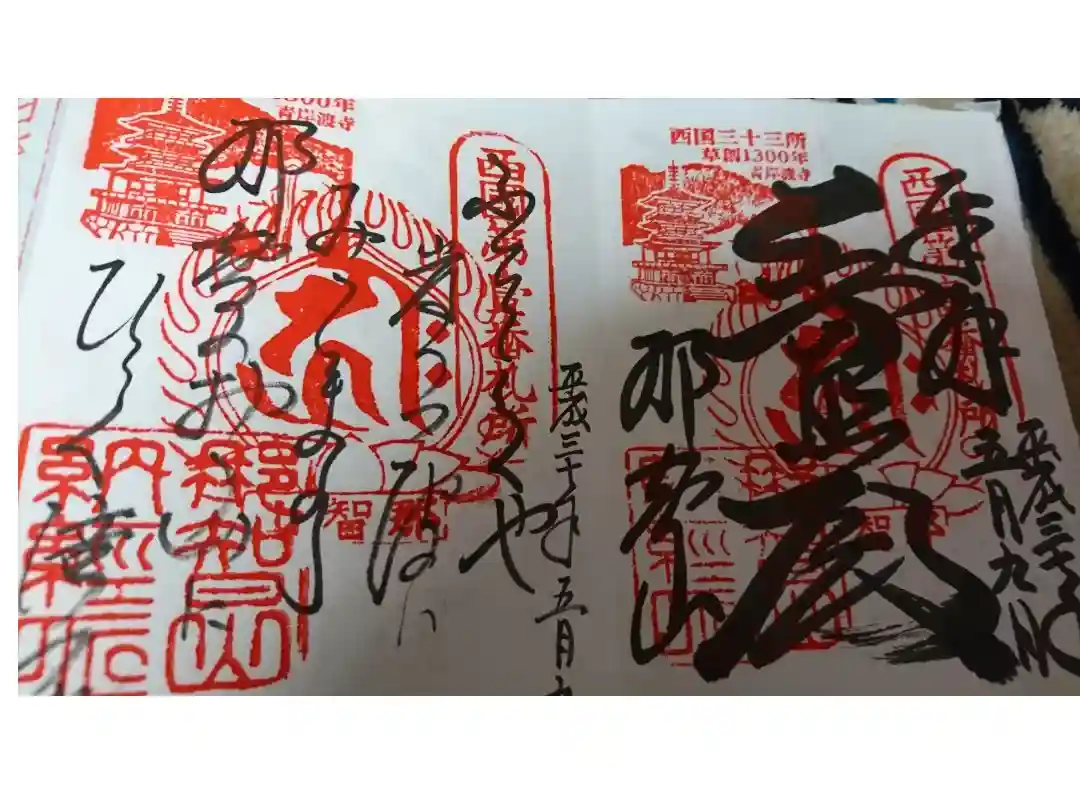 西国三十三所
草創1300年
青岸渡寺
奉拝
平成三十年
五月九日
那智山
ふだらくや
岸うつ波ハ
みくまのの
那智のお山に
ひ
平成三十年五月九
西国第壹番札所
1300年
青岸渡寺
那智
那智山
納経印